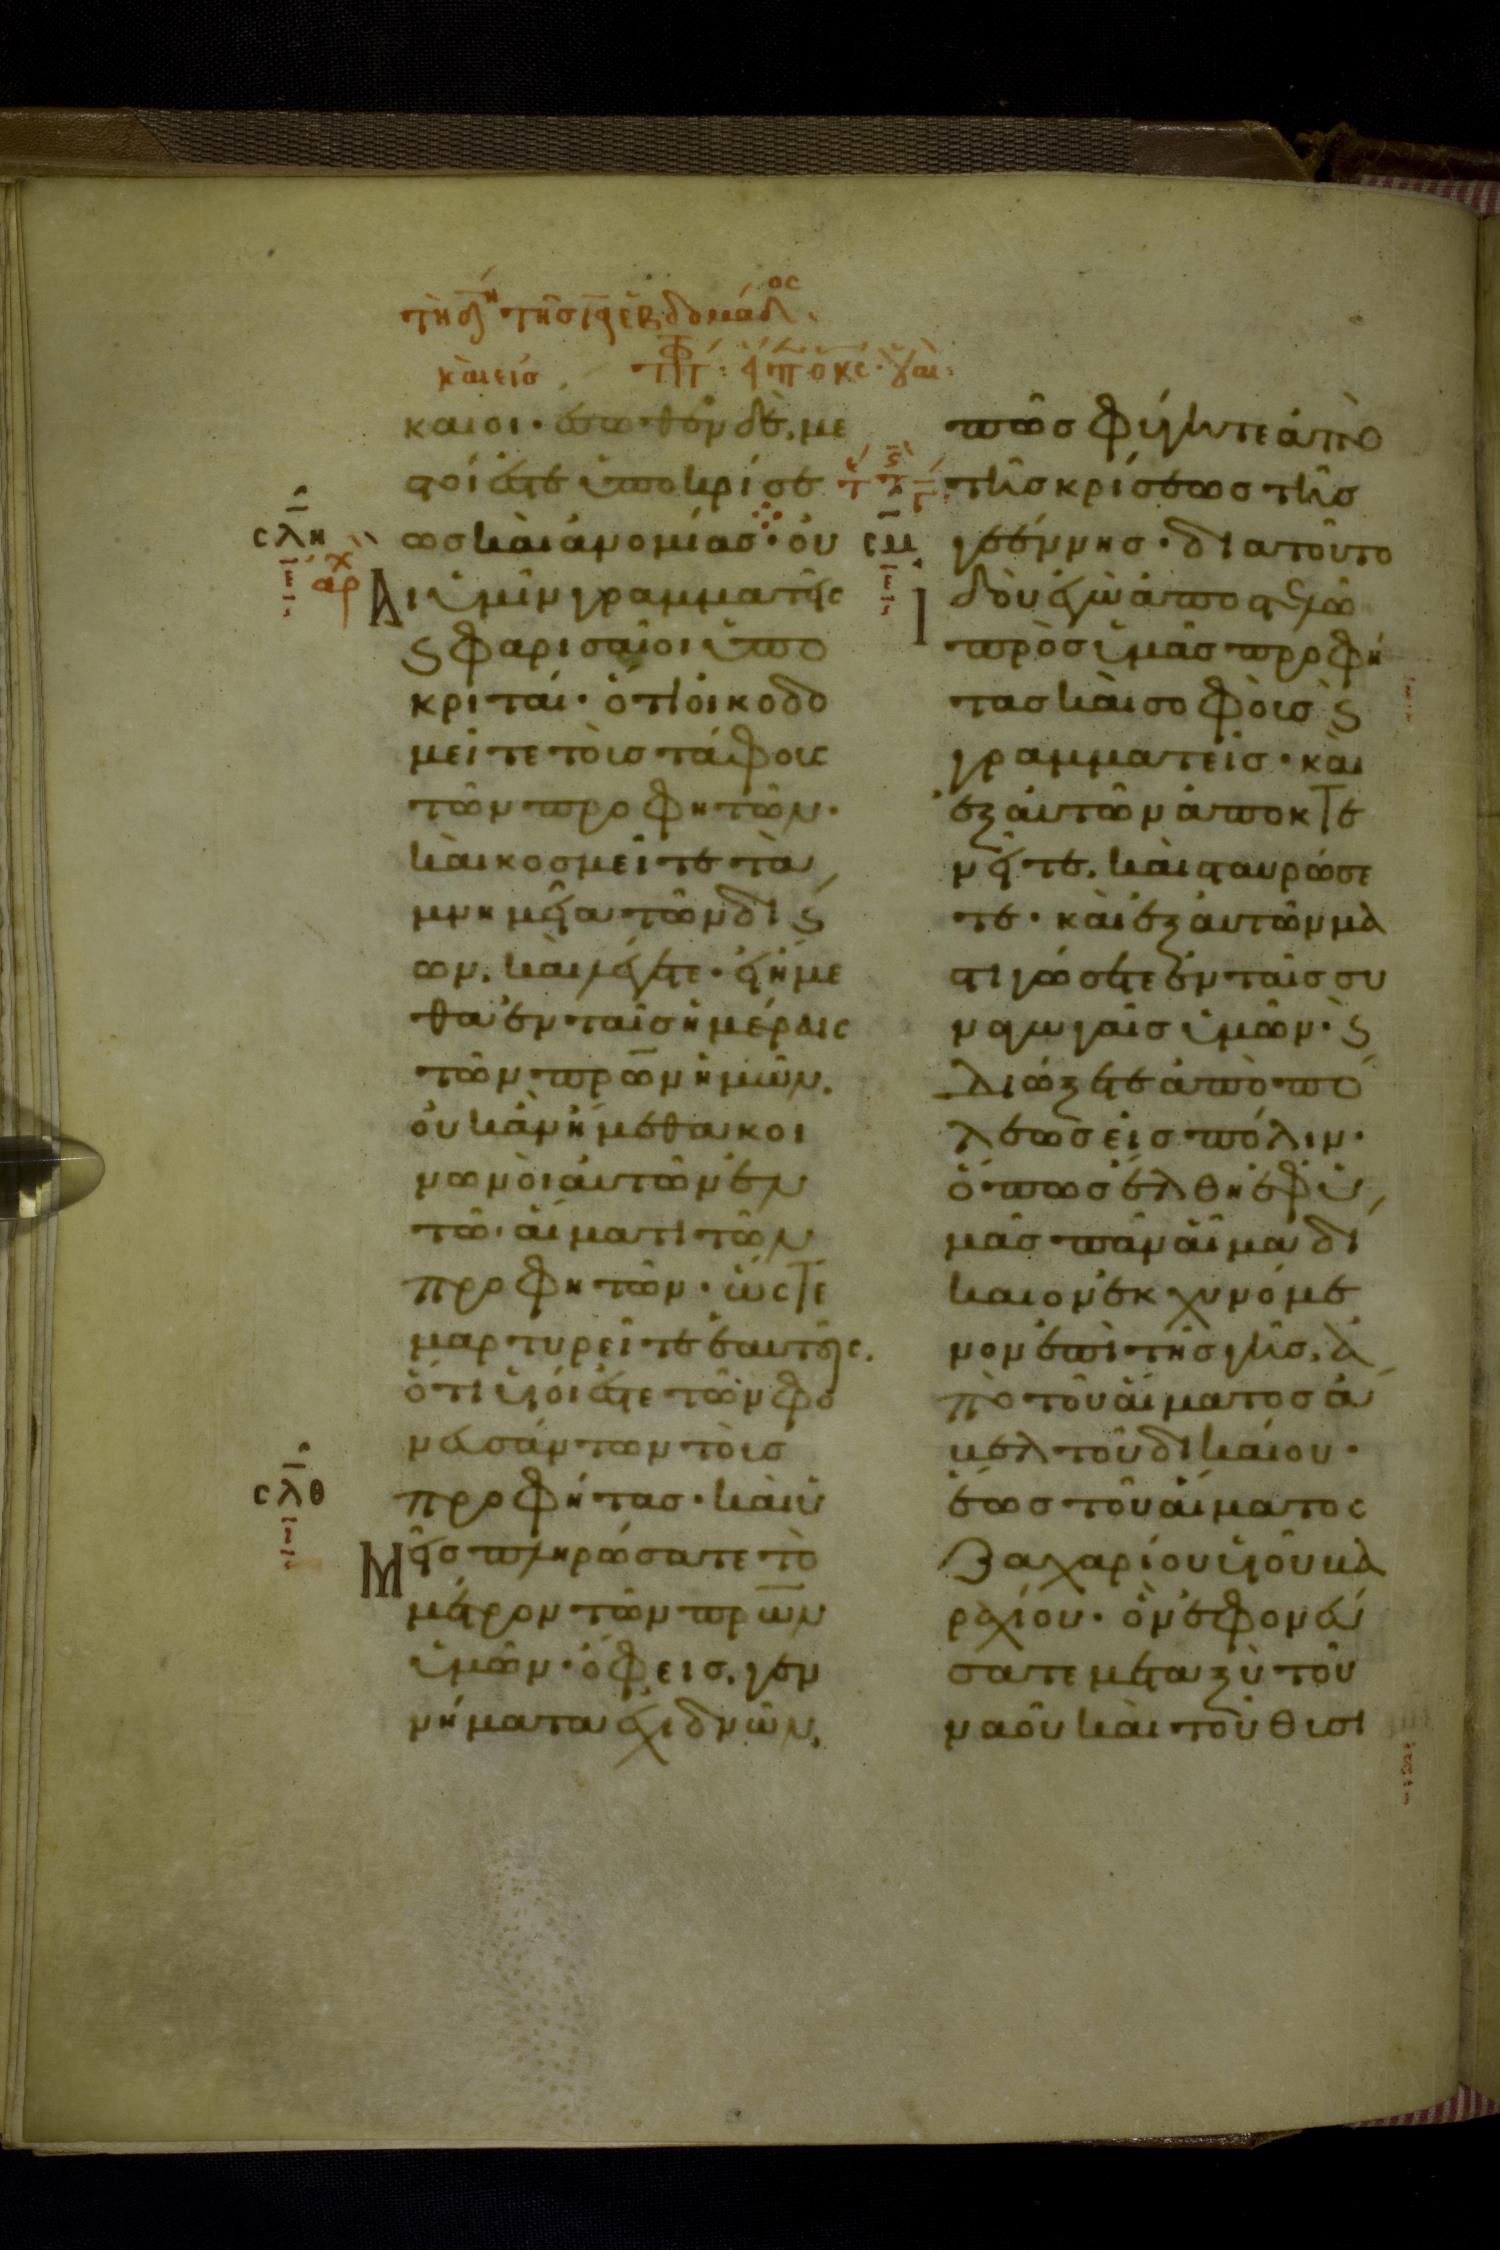 τῆ δ̅ τῆσ ι̅α̅ ἑβδομάδος.
καὶ εἰσ
καιοι· ἔσωθεν δὲ, με
στοί ἐστε ὑποκρίσε
ωσ καὶ ἀνομίασ· οὐ
σλη
Αι ὑμῖν γραμματεῖς
ϛ φαρισαῖοι ὑπο
κριταί· ὅτι οἰκοδο
μεῖτε τοὺσ τάφους
τῶν προφητῶν·
καὶ κοσμεῖτε τὰ
μνημεῖα τῶν διϛ
ων. καὶ λέγετε· εἰ ἤμε
θα ἐν ταῖσ ἡμέραις
τῶν πρ̅ων ἡμῶν.
οὐκ ἂν ἤμεθα κοι
νωνοὶ αὐτῶν ἐν
τῶ αἵματι τῶν
προφητῶν· ὥςτε
μαρτυρεῖτε ἑαυτοῖς.
ὅτι υἱοί ἐστε τῶν φο
νευσάντων τοὺσ
προφήτασ· καὶ ὑ
σλθ
Μεῖσ πληρώσατε τὸ
μέτρον τῶν πρω̅ν
ὑμῶν· ὄφεισ. γεν
νήματα ἐχιδνῶν.
πῶσ φύγητε ἀπὸ
τῆσ κρίσεωσ τῆσ
σμ
γεέννησ· διατοῦτο
Ἰδοὺ ἐγὼ ἀποστελῶ
πρὸσ ὑμᾶσ προφή
τασ καὶ σοφοὺσ ϛ
γραμματεῖσ· καὶ
ἐξ αὐτῶν ἀποκτε
νεῖτε. καὶ σταυρώσε
τε· καὶ ἐξ αὐτῶν μα
στιγώσετε ἐν ταῖσ συ
ναγωγαῖσ ὑμῶν· ϛ
διώξετε ἀπὸ πό
λεωσ εἰσ πόλιν·
ὅπωσ ἔλθη ἐφ ὑ
μᾶσ πᾶν αἷμα δί
καιον ἐκχυνόμε
νον ἐπὶ τῆσ γῆσ. ἀ
πὸ τοῦ αἵματοσ ἄ
βελ τοῦ δικαίου·
ἕωσ τοῦ αἵματος
Ζαχαρίου υἱοῦ βα
ραχίου· ὃν ἐφονεύ
σατε μεταξὺ τοῦ
ναοῦ καὶ τοῦ θυσι